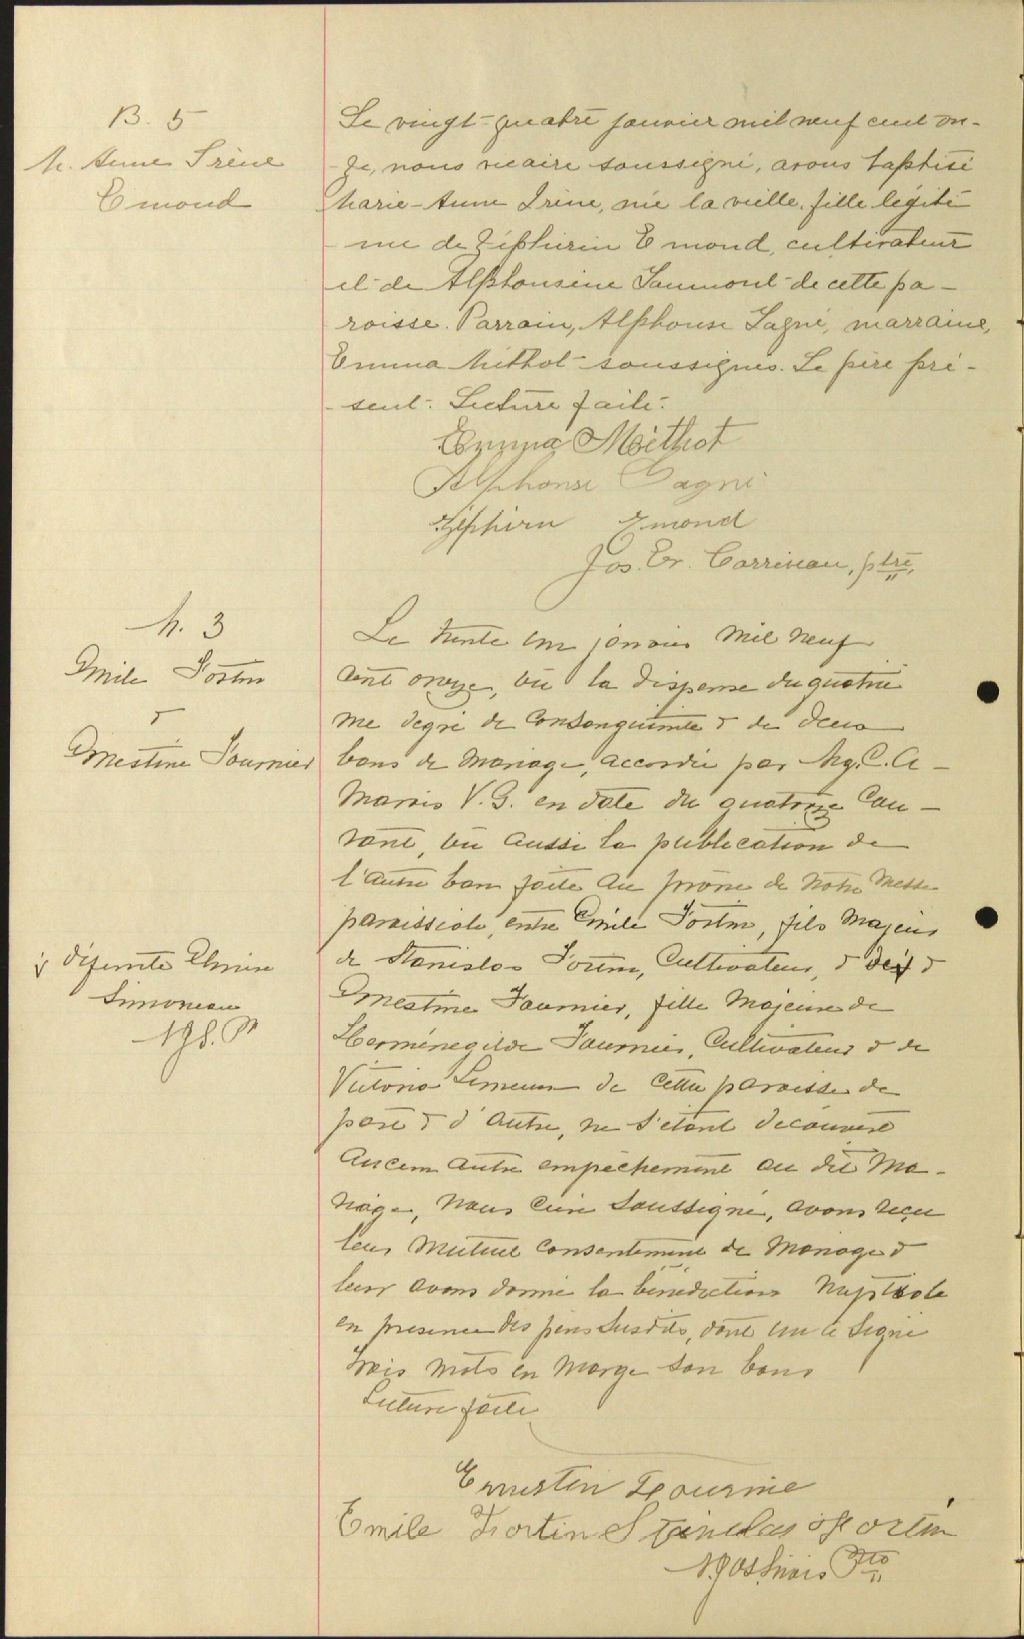 B. 5
M. Anne Irène
Emond
Le vingt-quatre janvier mil neuf cent on-
ze, nous vicaire soussigné, avons baptisé
Marie-Anne Irène, née la veille, fille légiti-
me de Zéphirin Emond, cultivateur
et de Alphonsine Laumont de cette pa-
roisse. Parrain, Alphonse Gagné, marraine,
Emma Méthot soussignés. Le père pré-
sent. Lecture faite.
Emma Méthot
Alphonse Gagné
Zéphirin Emond
Jos. Er. Corriveau, ptre,
M. 3
Emile Fortin
&
Ernestine Fournier
Le trente un janvier mil neuf
cent onze, vu la dispense du quatriè
me degré de consanguinité & de deux
bans de mariage, accordée par Mg. C. A
Marois V. G. en date du quatorze cou-
rant, vu aussi la publication de
l'autre ban faite au prône de notre messe
paroissiale, entre Emile Fortin, fils majeur
de Stanislas Fortin, cultivateur, & de &
# défunte Elmire
Simoneau
Ernestine Fournier, fille majeure de
Herménégilde Fournier, cultivateur & de
Victoria de cette paroisse de
part & d'autre, ne s'étant découvert
aucun autre empêchement au dit ma-
riage, nous curé soussigné, avons reçu
leur mutuel consentement de mariage &
leur avons donné la bénédiction nuptiale
en présence des pères susdits, dont un a signé
trois mots en marge son bons
Lecture faite
Ernestin Fournie
Emile Fortin Stanislas Fortin
Ptre